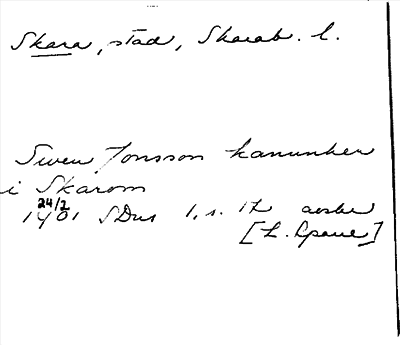 Skara, stad, Skarab. l.
Swen Jonsson kanunker
i Skarom
24/2
1401 SDns 1, s. 12 avskr
[L. Sparre]